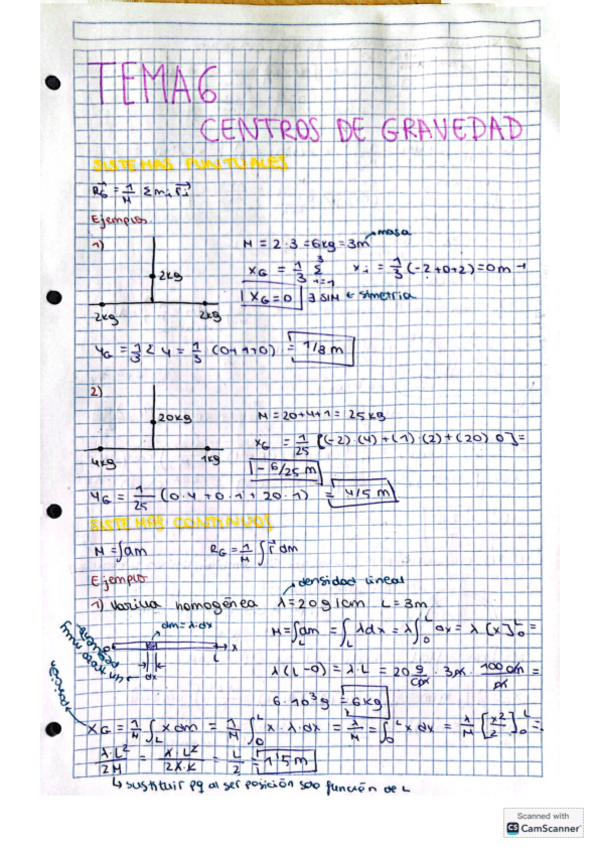 TEMA 6
CENTROS DE GRAVEDAD
SISTEMAS PUNTUALES
R⃗G = 1/M Σ mi r⃗i
Ejemplos
1)
2kg
2kg 2kg
M = 2·3 = 6kg = 3m → masa
XG = 1/3 Σ xi = 1/3 (-2+0+2) = 0m →
XG = 0 ∃ SIM ← simetria
YG = 1/3 Σ y = 1/3 (0+1+0) = 1/3 m
2)
20kg
4kg 1kg
M = 20+4+1 = 25kg
XG = 1/25 [(-2)·(4)+(1)·(2)+(20)·0] =
- 6/25 m
YG = 1/25 (0·4+0·1+20·1) = 4/5 m
SISTEMAS CONTINUOS
M = ∫dm RG = 1/M ∫ r⃗ dm
Ejemplo
densidad lineal
1) Varilla homogénea λ = 20g/cm L = 3m
dm = λ·dx
0 L x
dx
un trozo muy pequeño
posición
M = ∫L dm = ∫L λdx = λ∫0^L dx = λ [x]0^L =
λ(L-0) = λ·L = 20 g/cm · 3m · 100cm/m =
6·10³g = 6kg
XG = 1/M ∫L x dm = 1/M ∫0^L x·λ·dx = λ/M = ∫0^L x dx = λ/M [x²/2]0^L =
λ·L²/2M = λ·L²/2λ·L = L/2 = 1'5m
↳ sustituir pq al ser posición solo función de L
Scanned with
CS CamScanner